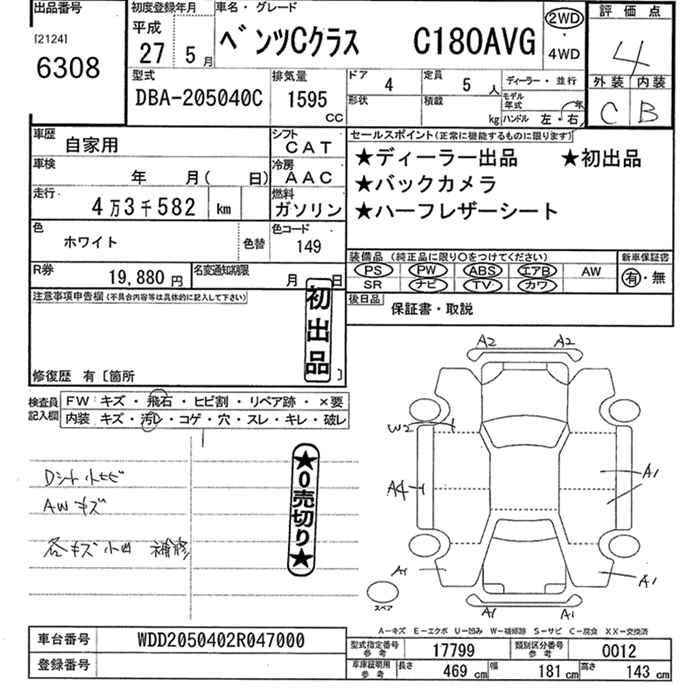 出品番号
[2124]
6308
初度登録年月
平成
27 5 月
車名・グレード
ベンツCクラス C180AVG
2WD
・
4WD
評価点
4
外装 内装
C B
型式
DBA-205040C
排気量
1595
CC
ドア 4
定員 5 人
ディーラー・並行
形状
積載 kg
モデル年式 年
ハンドル 左・右
車歴 自家用
シフト
CAT
車検 年 月( 日)
冷房
AAC
走行 4万3千582 km
燃料
ガソリン
色 ホワイト 色替
色コード
149
R券 19,880 円
名変通知期限 月 日
セールスポイント(正常に機能するものに限ります)
★ディーラー出品 ★初出品
★バックカメラ
★ハーフレザーシート
装備品 (純正品に限り○をつけてください)
PS PW ABS エアB AW
SR ナビ TV カワ
新車保証書
有・無
後日品 保証書・取説
注意事項申告欄(不具合内容等は具体的に記入して下さい)
初出品
修復歴 有 [箇所 ]
検査員記入欄
FW キズ・飛石・ヒビ割・リペア跡・×要
内装 キズ・汚レ・コゲ・穴・スレ・キレ・破レ
Dシート小ヒビ
AWキズ
各キズ小凹 補修
★0売切り★
A2 A2
W2
A4
A1
A1 A1
A1 A1
スペア
A-キズ E-エクボ U-凹み W-補修跡 S-サビ C-腐食 XX-交換済
車台番号 WDD2050402R047000
登録番号
型式指定番号 参考 17799
類別区分番号 参考 0012
車庫証明用 参考 長さ 469 cm 幅 181 cm 高さ 143 cm